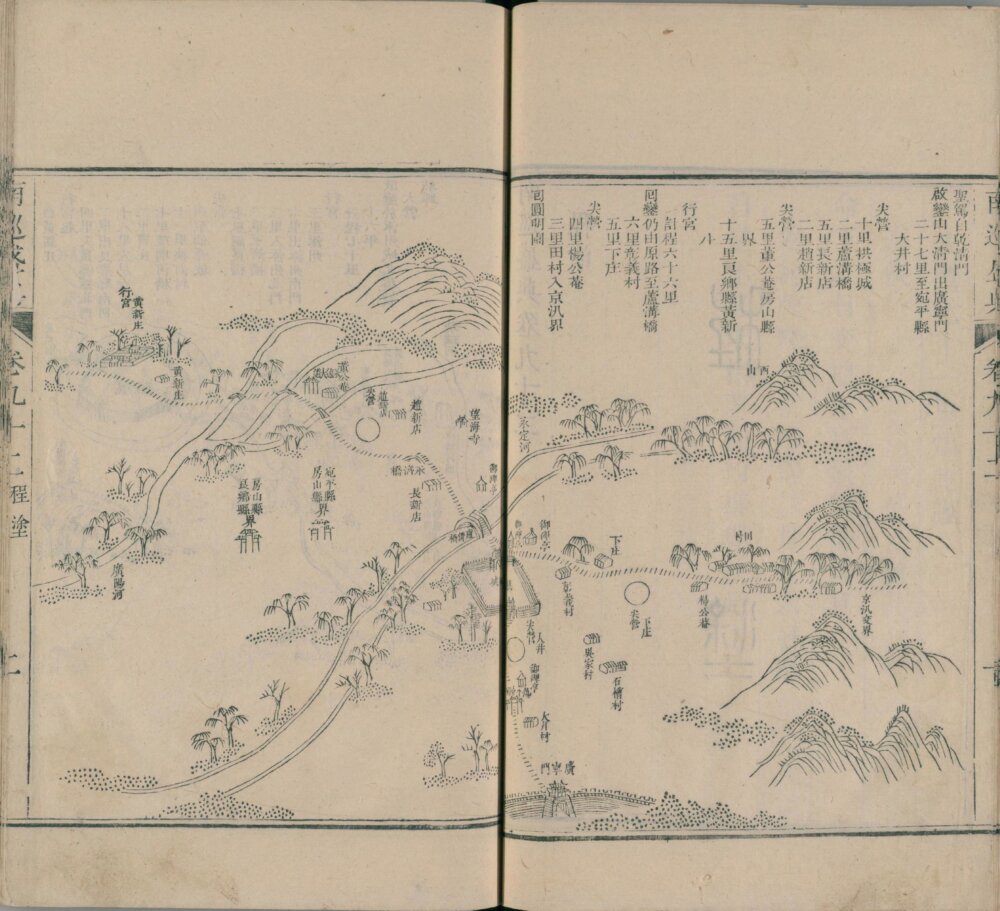 聖駕自乾清門
啟鑾由大清門出廣寧門
二十七里至宛平縣
大井村
尖營
十里拱極城
二里蘆溝橋
五里長新店
二里趙新店
尖營
五里董公菴房山縣
界
十五里良鄉縣黃新
行宮
計程六十六里
回鑾仍由原路至蘆溝橋
六里彰義村
五里下庄
尖營
四里楊公菴
三里田村入京汛界
回圓明園
西山
永定河
御碑亭
下庄
田村
彰義村
尖營
下庄
楊公菴
京汛交界
吳家村
石槽村
尖營
大井
大井村
廣寧門
卷九十二 程塗
黃新庄
行宮
黃新庄
董公菴
尖營
趙新店
望海寺
長新店
宛平縣
房山縣界
房山縣
良鄉縣界
廣陽河